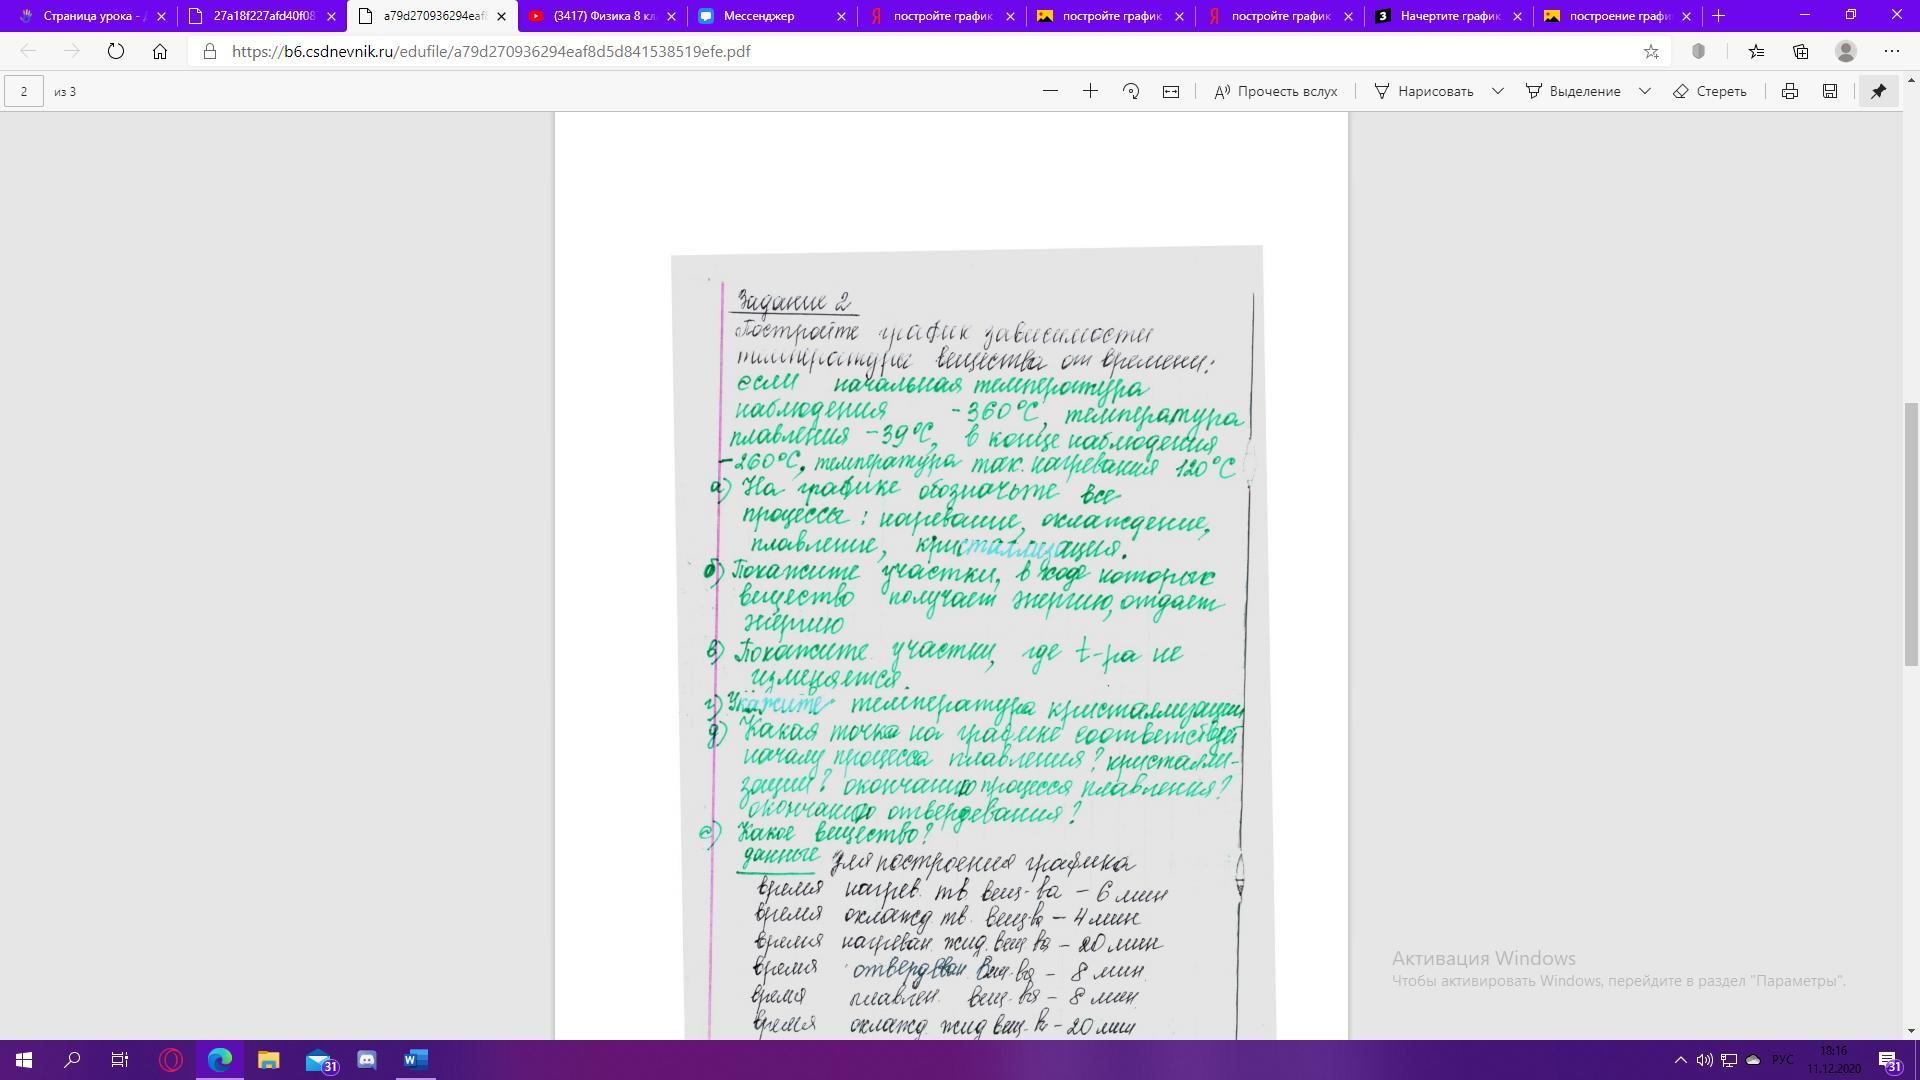 Страница урока - Д
27a18f227afd40f08
a79d270936294eaf
(3417) Физика 8 кл
Мессенджер
постройте график
постройте график
постройте график
Начертите график
построение графи
https://b6.csdnevnik.ru/edufile/a79d270936294eaf8d5d841538519efe.pdf
2 из 3
Прочесть вслух
Нарисовать
Выделение
Стереть
Задание 2
Постройте график зависимости
температуры вещества от времени:
если начальная температура
наблюдения -360°С, температура
плавления -39°С, в конце наблюдения
-260°С, температура мак. нагревания 120°С
а) На графике обозначьте все
процессы: нагревание, охлаждение,
плавление, кристаллизация.
б) Покажите участки, в ходе которых
вещество получает энергию, отдает
энергию
в) Покажите участки, где t-ра не
изменяется.
г) Укажите температура кристаллизации
д) Какая точка на графике соответствует
началу процесса плавления? кристалли-
зации? окончанию процесса плавления?
окончанию отвердевания?
е) Какое вещество?
данные для построения графика
время нагрев. тв. вещ-ва - 6 мин
время охлажд. тв. вещ-ва - 4 мин
время нагреван. жид. вещ-ва - 20 мин
время отвердеван. вещ-ва - 8 мин
время плавлен. вещ-ва - 8 мин
время охлажд. жид вещ-в - 20 мин
Активация Windows
Чтобы активировать Windows, перейдите в раздел "Параметры".
31
РУС
18:16
11.12.2020
31